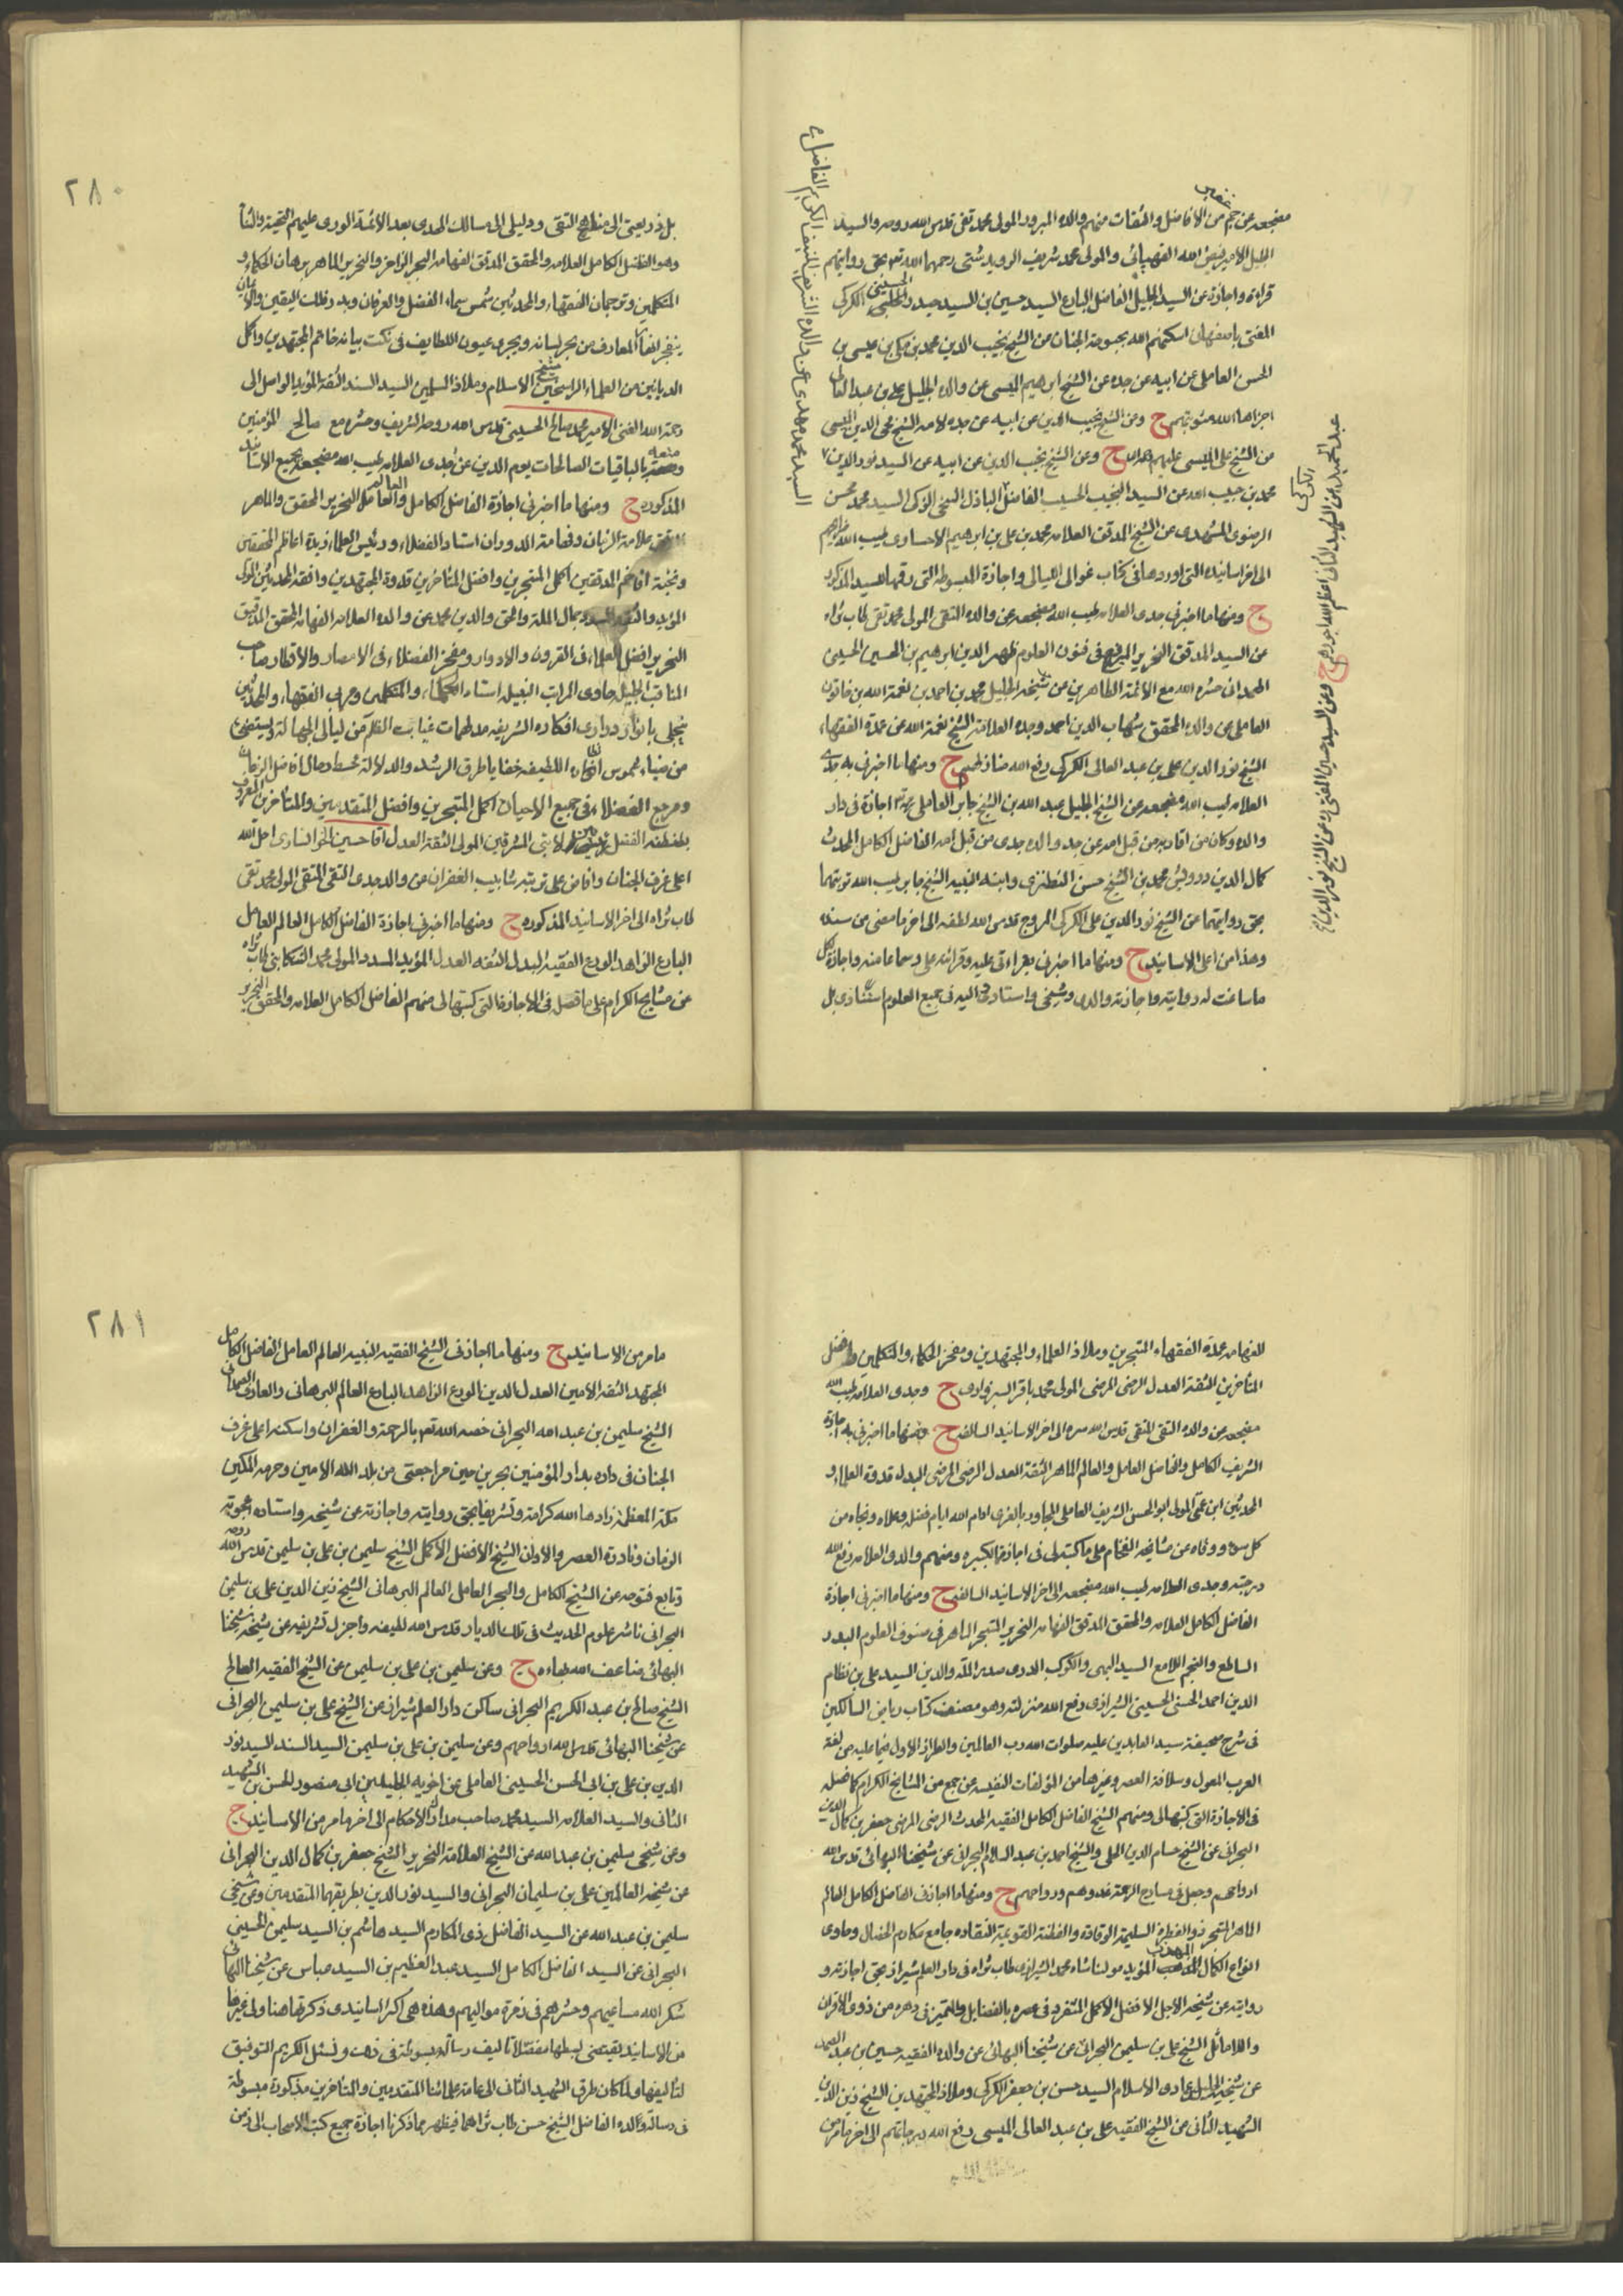 مضجعه عن جم من الافاضل والثقات منهم والده المبرور المولى محمد تقى قدس الله روحه والسيد
الجليل الامير فيض الله القهپائى والمولى محمد شريف الرويدشتى رحمهما الله تعالى بحق روايتهم
قراءة واجازة عن السيد الجليل الفاضل البارع السيد حسين بن السيد حيدر الحسينى الكركى
المفتى باصفهان اسكنهم الله بحبوحة الجنان عن الشيخ نجيب الدين محمد بن مكى بن عيسى بن
الحسن العاملى عن ابيه عن جده عن الشيخ ابرهيم الميسى عن والده الجليل على بن عبد العالى
اجزل الله مثوبتهم ح وعن الشيخ نجيب الدين عن ابيه عن جده لامه الشيخ محى الدين الميسى
عن الشيخ على الميسى عليهم ح وعن الشيخ نجيب الدين عن ابيه عن السيد نور الدين
محمد بن حبيب الله عن السيد النجيب الحسيب الفاضل الباذل السخى الزكى السيد محمد محسن
الرضوى المشهدى عن الشيخ المدقق العلامه محمد بن على بن ابرهيم الاحساوى طيب الله
الى اخر اسانيده التى اوردها فى كتاب غوالى الليالى واجازة المبسوطه التى رقمها للسيد المذكور
ح ومنها ما اخبرنى جدى العلامه طيب الله مضجعه عن والده التقى المولى محمد تقى طاب ثراه
عن السيد المدقق النحرير فى فنون العلوم ظهير الدين ابرهيم بن الحسين الحسينى
الهمدانى حشره الله مع الائمة الطاهرين عن شيخه الجليل محمد بن احمد بن نعمة الله بن خاتون
العاملى عن والده المحقق شهاب الدين احمد وجده العلامة الشيخ نعمة الله عن عمدة الفقهاء
الشيخ نور الدين على بن عبد العالى الكركى رفع الله منازلهم ح ومنها ما اخبرنى به جدى
العلامه طيب الله مضجعه عن الشيخ الجليل عبد الله بن الشيخ جابر العاملى اجازة فى دار
والده وكان من اقاربه من قبل امه عن جد والده جدى من قبل امه الفاضل الكامل المحدث
كمال الدين درويش محمد بن الشيخ حسن النطنزى وابنه النبيه الشيخ جابر طيب الله تربتهما
بحق روايتهما عن الشيخ نور الدين على الكركى المروج قدس الله لطفه الى اخر ما مضى من سنده
وهذا من اعلى الاسانيد ح ومنها ما اخبرنى بقراءتى عليه وقرائته على وسماعا منه واجازة لكل
ما ساغت له روايته واجازته والدى وشيخى واستادى ومن اليه فى جميع العلوم استنادى بل
السيد محمد مهدى عن والده الشريف المنيف الكريم الفاضل
عبد الحميد ابن الشهيد الثانى اعظم الله اجورهم ح وعن السيد حسين المفتى عن الشيخ نور الدين
الكركى
٢٨٠
بل ذريعتى الى مناهج التقى ودليلى الى مسالك الهدى بعد الائمة الورى عليهم التحية والثناء
وهو الفاضل الكامل العلامه والمحقق المدقق الفهامه البحر الزاخر والنحرير الماهر برهان الحكماء و
المتكلمين وترجمان الفقهاء والمحدثين شمس سماء الفضل والعرفان وبدر فلك اليقين والايمان
ينفجر انهار المعارف من بحر لسانه ويجرى عيون اللطايف فى نكت بيانه خاتم المجتهدين واكمل
الربانيين من العلماء الراسخين شيخ الاسلام وملاذ المسلمين السيد السند الثقة المؤيد الواصل الى
رحمة الله الغنى الامير محمد صالح الحسينى قدس الله روحه الشريف وحشره مع صالح المؤمنين
ومتعه بالباقيات الصالحات يوم الدين عن جدى العلامه طيب الله مضجعه بجميع الاسانيد
المذكوره ح ومنها ما اخبرنى اجازة الفاضل الكامل والعالم العامل النحرير المحقق والماهر
المدقق علامة الزمان وفهامة الدوران استاد الفضلاء ورئيس العلماء زبدة اعاظم المحققين
ونخبة افاخم المدققين اكمل المتبحرين وافضل المتاخرين قدوة المجتهدين وافقه المحدثين المولى
المؤيد والثقة المسدد جمال الملة والحق والدين محمد عن والده العلامه الفهامه المحقق المدقق
النحرير افضل العلماء فى القرون والادوار ومفخر الفضلاء فى الامصار والاقطار صاحب
المناقب الجليله حاوى المراتب النبيله استاد الحكماء والمتكلمين ومربى الفقهاء والمحدثين
ينجلى بانوار درارى افكاره الشريفه مدلهمات غياهب الظلم من ليالى الجهالة ويستضئ
من ضياء شموس انظاره اللطيفه خفايا طرق الرشد والدلالة محط رحال افاضل الزمان
ومرجع الفضلاء فى جميع الاحيان اكمل المتبحرين وافضل المتقدمين والمتاخرين المعروف
بطنطنة الفضل بين لابتى المشرقين المولى الثقة العدل اقا حسين الخوانسارى احله الله
اعلى غرف الجنان وافاض على تربته شابيب الغفران عن والد جدى التقى المتقى المولى محمد تقى
طاب ثراه الى اخر الاسانيد المذكوره ح ومنها ما اخبرنى اجازة الفاضل الكامل العالم العامل
البارع الزاهد الورع الفقيه البدل الثقة العدل المؤيد المسدد المولى محمد التنكابنى طاب ثراه
عن مشايخ الكرام على ما فصل فى الاجازة التى كتبها لى منهم الفاضل الكامل العلامه والمحقق النحرير
الفهامه عمدة الفقهاء المتبحرين وملاذ العلماء والمجتهدين ومفخر الحكماء والمتكلمين وافضل
المتاخرين الثقة العدل الرضى المرضى المولى محمد باقر السبزوارى ح وجدى العلامه طيب الله
مضجعه عن والده التقى المتقى قدس الله سره الى اخر الاسانيد السالفه ح ومنها ما اخبرنى به اجازة
الشريف الكامل والفاضل العامل والعالم الماهر الثقة العدل الرضى المرضى البدل قدوة العلماء و
المحدثين ابن عمتى المولى ابو الحسن الشريف العاملى المجاور بالغرى ادام الله ايام فضله وعلاه ونجاه من
كل سوء ووقاه عن مشايخه الفخام على ما كتبه لى فى اجازة الكبيره ومنهم والدى العلامه رفع الله
درجته وجدى العلامه طيب الله مضجعه الى اخر الاسانيد السالفه ح ومنها ما اخبرنى اجازة
الفاضل الكامل العلامه والمحقق المدقق الفهامه النحرير المتبحر الماهر فى صنوف العلوم البدر
الساطع والنجم اللامع السيد البهى والكوكب الدرى صدر الملة والدين السيد على بن نظام
الدين احمد الحسنى الحسينى الشيرازى رفع الله منزلته وهو مصنف كتاب رياض السالكين
فى شرح صحيفة سيد العابدين عليه صلوات الله رب العالمين والطراز الاول فيما عليه من لغة
العرب المعول وسلافة العصر وغيرها من المؤلفات النفيسه عن جمع من المشايخ الكرام كما فصله
فى الاجازة التى كتبها لى ومنهم الشيخ الفاضل الكامل الفقيه المحدث الرضى المرضى جعفر بن كمال الدين
البحرانى عن الشيخ حسام الدين الحلى والشيخ احمد بن عبد السلام البحرانى عن شيخنا البهائى قدس الله
ارواحهم وجعل فى مسارح الرحمة غدوهم ورواحهم ح ومنها ما اجازنى الفاضل الكامل العالم
الماهر المتبحر ذو الفطرة السليمة الوقادة والفطنة القويمة النقاده جامع مكارم الخصال وحاوى
انواع الكمال المهذب المؤيد مولنا شاه محمد الشيرازى طاب ثراه فى دار العلم شيراز بحق اجازته و
روايته عن شيخه الاجل الافضل الاكمل المتفرد فى عصره بالفضايل والمتميز فى دهره من ذوى الاقران
والاماثل الشيخ على بن سليمن البحرانى عن شيخنا البهائى عن والده الفقيه حسين بن عبد الصمد
عن شيخيه الجليلين عمادى الاسلام السيد حسن بن جعفر الكركى وملاذ المجتهدين الشيخ زين الدين
الشهيد الثانى عن الشيخ الفقيه على بن عبد العالى الميسى رفع الله درجاتهم الى اخر ما مر من
٢٨١
ما مر من الاسانيد ح ومنها ما اجازنى الشيخ الفقيه النبيه العالم العامل الفاضل الكامل
المجتهد الثقة الامين العدل الدين الورع الزاهد البارع العالم البرهانى والعارف الصمدانى
الشيخ سليمن بن عبد الله البحرانى خصه الله تعالى بالرحمة والغفران واسكنه اعلى غرف
الجنان فى داره بدار المؤمنين بحرين حين مراجعتى من بلد الله الامين وحرمه المكين
مكة المعظمة زادها الله كرامة وتشريفا بحق روايته واجازته عن شيخه واستاده اعجوبة
الزمان ونادرة العصر والاوان الشيخ الافضل الاكمل الشيخ سليمن بن على بن سليمن قدس الله روحه
وتابع فتوحه عن الشيخ الكامل والبحر العامل العالم البرهانى الشيخ زين الدين على بن سليمن
البحرانى ناشر علوم الحديث فى تلك الديار قدس الله لطيفه واجزل تشريفه عن شيخه شيخنا
البهائى ضاعف الله بهاءه ح وعن سليمن بن على بن سليمن عن الشيخ الفقيه الصالح
الشيخ صالح بن عبد الكريم البحرانى ساكن دار العلم شيراز عن الشيخ على بن سليمن البحرانى
عن شيخنا البهائى قدس الله ارواحهم وعن سليمن بن على بن سليمن السيد السند السيد نور
الدين بن على بن ابى الحسن الحسينى العاملى عن اخويه الجليلين ابى منصور الحسن بن الشهيد
الثانى والسيد العلامه السيد محمد صاحب مدارك الاحكام الى اخر ما مر من الاسانيد ح
وعن شيخى سليمن بن عبد الله عن الشيخ العلامة النحرير الشيخ جعفر بن كمال الدين البحرانى
عن شيخه العالمين على بن سليمان البحرانى والسيد نور الدين بطريقهما المتقدمين وعن شيخى
سليمن بن عبد الله عن السيد الفاضل ذى المكارم السيد هاشم بن السيد سليمن الحسينى
البحرانى عن السيد الفاضل الكامل السيد عبد العظيم بن السيد عباس عن شيخنا البهائى
شكر الله مساعيهم وحشرهم فى زمرة مواليهم وهذه هى اكثر اسانيدى ذكرتها هنا ولى غيرها
من الاسانيد يقتضى بسطها مفصلا تاليف رسالة مبسوطة فى ذلك ونسئل الكريم التوفيق
لتاليفها ولما كان طرق الشهيد الثانى الى عامة علمائنا المتقدمين والمتاخرين مذكورة مبسوطة
فى رسالة ولده الفاضل الشيخ حسن طاب ثراهما فيظهر مما ذكرنا اجازة جميع كتب الاصحاب الى زمن